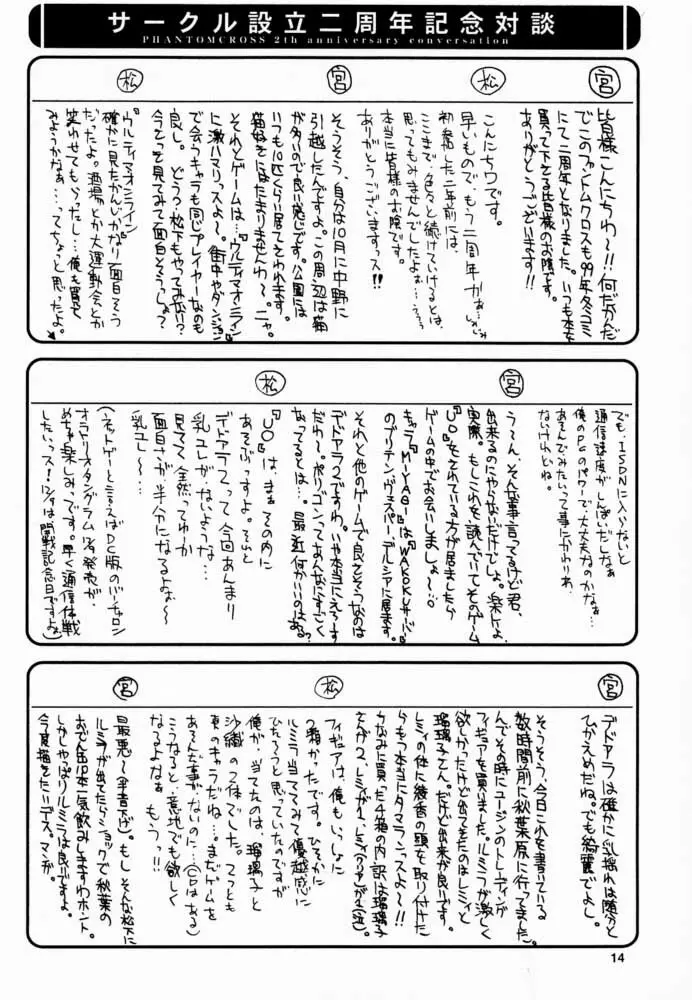 サークル設立二周年記念対談
PHANTOMCROSS 2th anniversary conversation
宮
皆様こんにちわ〜!!何だかんだ
でこのファントムクロスも99年冬コミ
にて二周年となりました。いつも本を
買って下さる皆様のお陰です。
ありがとうございます!!
松
こんにちワです。
早いもので、もう二周年かぁ…しみじみ
初参加した二年前には、
ここまで、色々と続けていけるとは、
思ってもみませんでしたよぉ…うううう
本当に皆様のお陰です。
ありがとうございますっス!!
宮
そうそう、自分は10月に中野に
引越したんですよ。この周辺は猫
が多いので良い感じです。公園には
いつも10匹くらい居てそれます。
猫好きにはたまりませんわ〜。ニャ。
それとゲームは…『ウルティマオンライン』
に激ハマリっスよ〜。街中やダンジョン
で会うキャラも同じプレイヤーなのも
良し。どう?松下もやってみない?
今そっを見てみて面白そうっしょ?
松
『ウルティマオンライン』
確かに見たかんじ、かなり面白そう
だったよ。酒場とか大運動会とか
笑わせてもらったし…俺も買って
みようかなぁ…ってちょっと思ったよ。
でも、ISDNに入らないと
通信速度がしんぱいだしなぁ
俺のPCのパワーで大丈夫なのかなぁ…
あそんでみたいって事にかわりぁ、
ないけれどね。
宮
う〜ん、そんな事言ってるけど君、
出来るのにやらないだけでしょ。楽しいよ
実際。もしこれを読んでいてそのゲーム
『UO』をされている方が居ましたら
ゲームの中でお会いしましょ〜!!○
キャラ『MIYABI』は『WAKOKU』サーバー
のブリテン、ヴェスパー、デルシアに居ます。
それと他のゲームで良さそうなのは
デドアラ2ですわ。いや本当にえろーす
だわ〜。ポリゴンってあんなにすごく
なってるとは…。最近何かいいのはある?
松
『UO』は、まぁ その内に
あそぶっすよ。それと
デドアラ2って今回あんまり
乳ユレが、ないような…
見てて、全然ってゆーか
面白さが、半分になるよぉ〜
乳ユレ〜〜〜…
(ネットゲーと言えばDC版のバーチャロン
オラトリオタングラム12/9発売が、
めちゃ楽しみっです。早く通信体戦
したいっス!12/9は開戦記念日ですよぉ)
宮
デドアラは確かに乳揺れは随分と
ひかえめだね。でも綺麗でよし。
そうそう、今日これを書いている
数時間前に秋葉原に行ってました。
んでその時にユージンのトレーディング
フィギュアを買いました。ルミラが激しく
欲しかったけど出てきたのはレミィと
瑠璃子さん。だけど出来が良いです。
レミィの体に綾香の頭を取り付けた
らもっ本当にタマランっスよ〜!!
ちなみに買った4箱の内訳は瑠璃子
さんが2、レミィが1
松
フィギュアは、俺もいっしょに
2箱かったです。ひそかに
ルミラ当ててみて優越感に
ひたろうと思っていたのですが
俺が、当てたのは、瑠璃子と
沙織の2体でした。2つとも
東のキャラだね…まだゲームを
あそんだ事が、ないのに…(CDはある)
こうなると、意地でも欲しく
なるよなぁ もうっ!!
宮
最悪〜(半音下げ)。もしそんな松下に
ルミラが出てたらショックで秋葉の
おでん缶10本一気飲みしますわホント。
しかしやっぱりルミラは良いですよ。
今度描きたいデス。マジが。
14